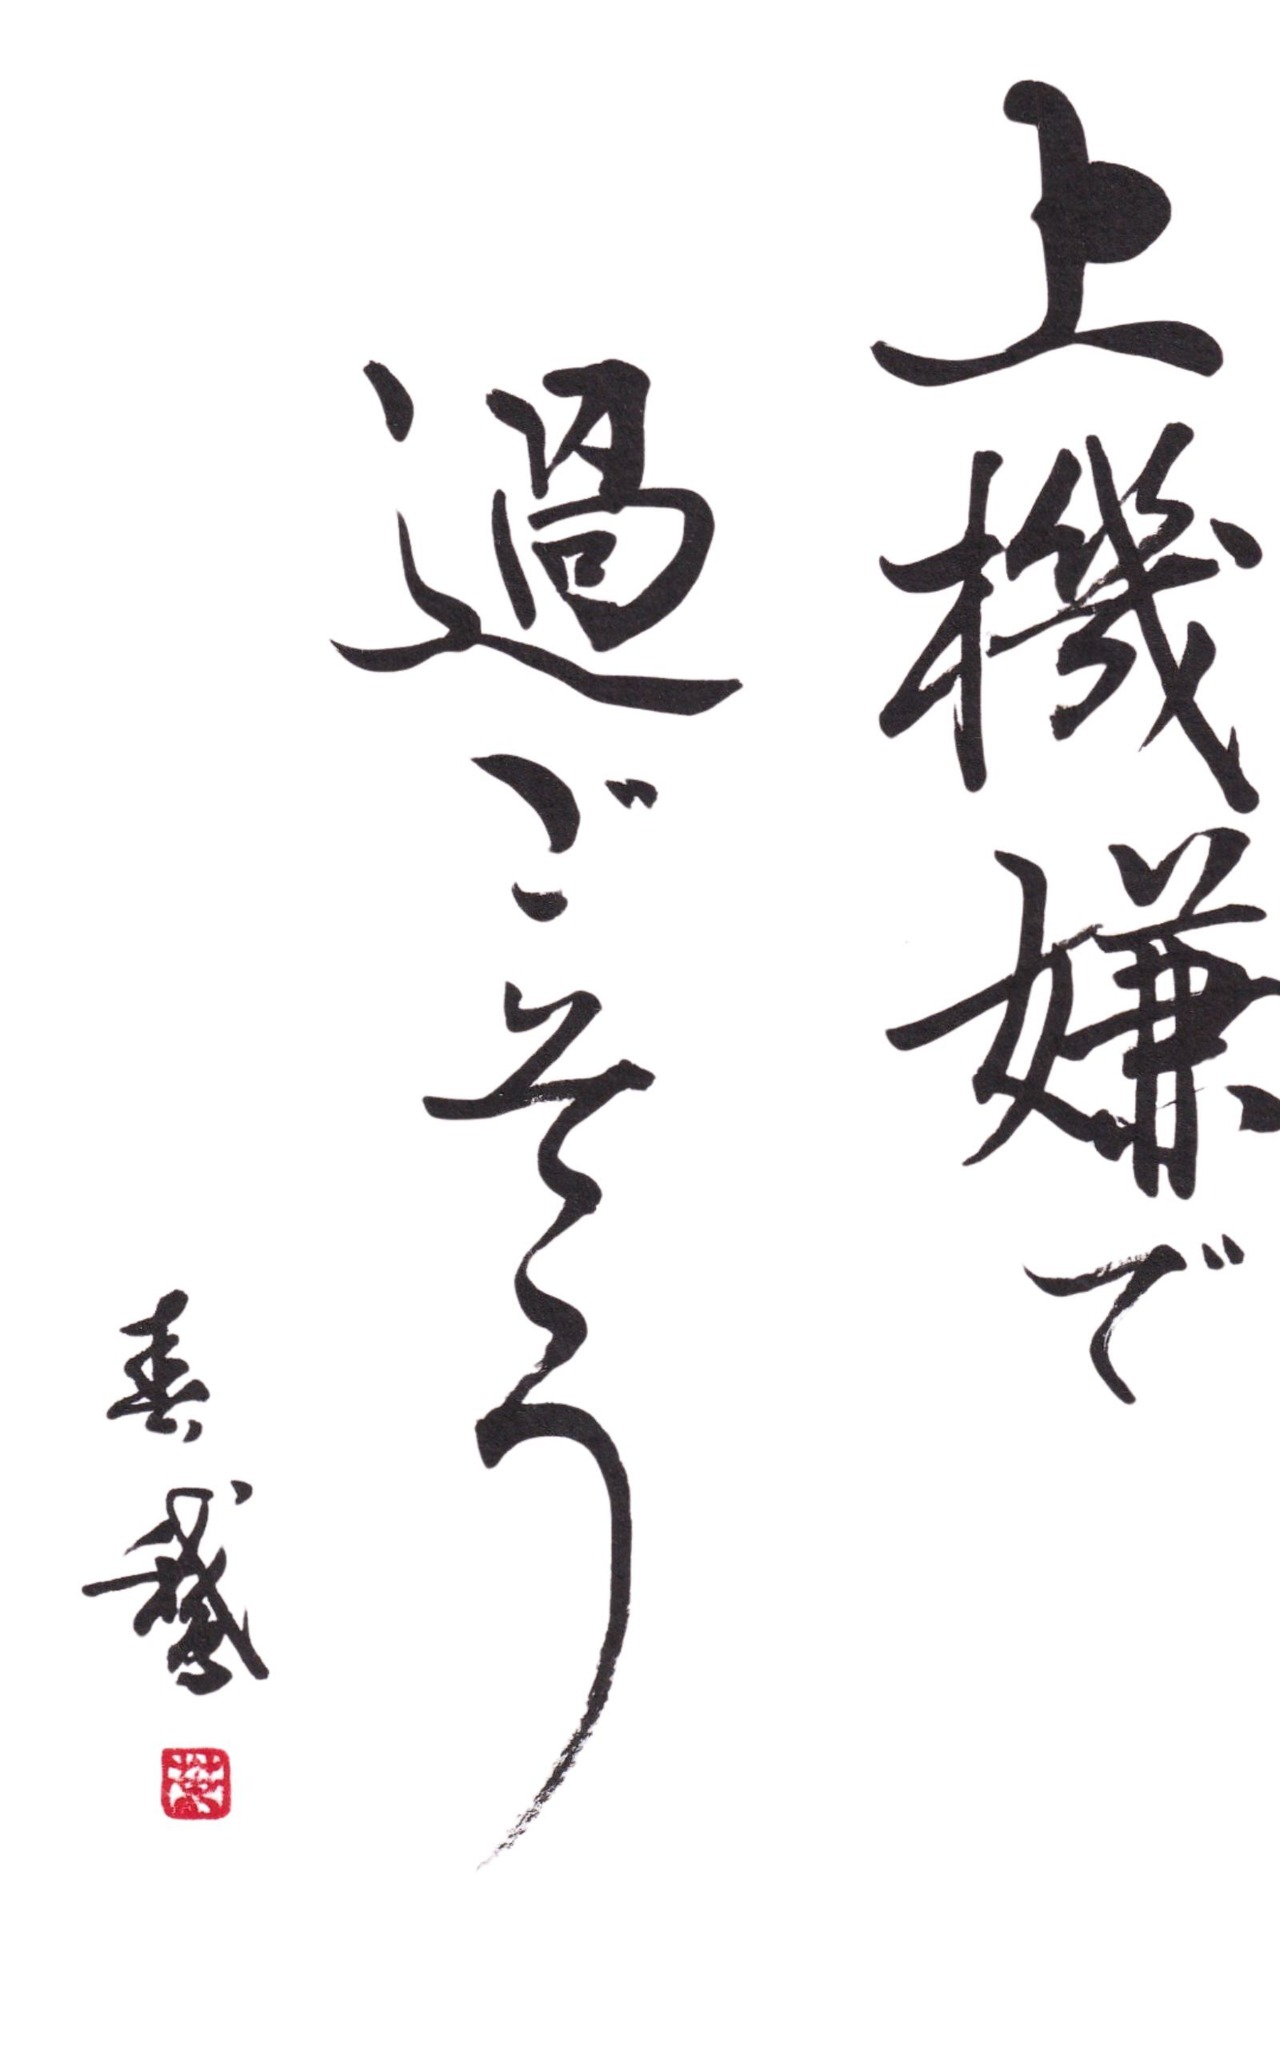 上機嫌で
過ごそう
春鵞